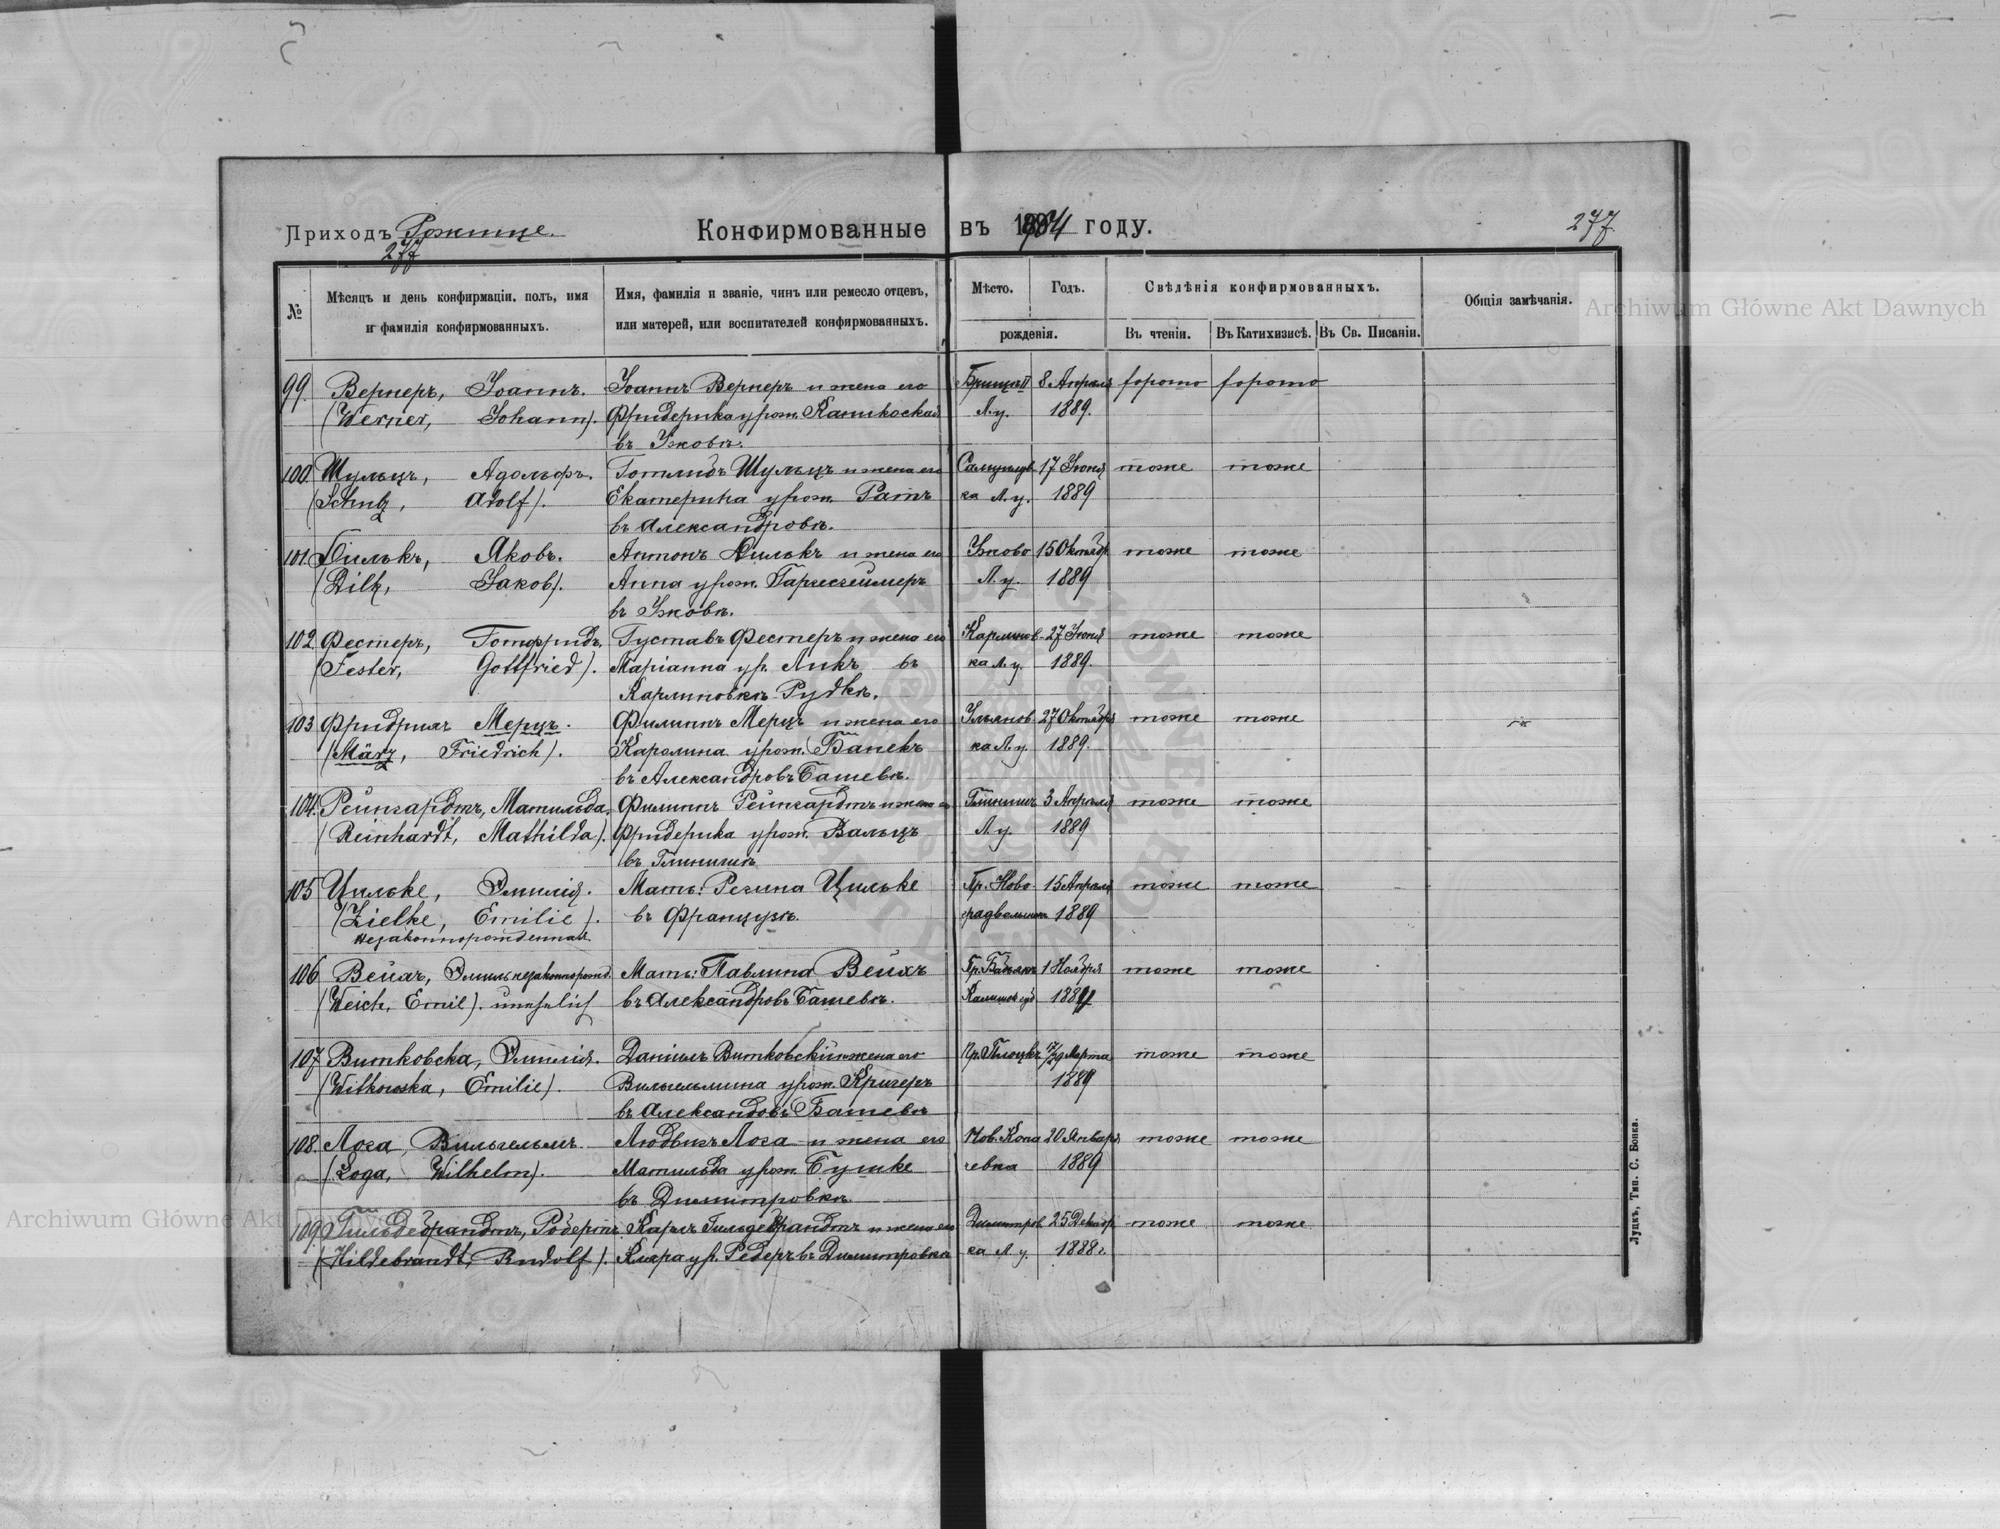 Приходъ Рожище.
277
Конфирмованные въ 1904 году.
277
№
Мѣсяцъ и день конфирмаціи, полъ, имя
и фамилія конфирмованныхъ.
Имя, фамилія и званіе, чинъ или ремесло отцевъ,
или матерей, или воспитателей конфирмованныхъ.
Мѣсто.
Годъ.
рожденія.
Свѣдѣнія конфирмованныхъ.
Въ чтеніи.
Въ Катихизисѣ.
Въ Св. Писаніи.
Общія замѣчанія.
99. Вернеръ, Іоаннъ. Іоаннъ Вернеръ и жена его 8 Апрѣля хорошо хорошо
(Werner, Johann). Фридерика урож. Л.у. 1889.
въ Ужовѣ.
100. Шульцъ, Адольфъ. Готлибъ Шульцъ и жена его 17 Іюня тоже тоже
(Schulz, Adolf). Екатерина урож. Ратъ ка Л.у. 1889
въ Александровкѣ.
101. Дилькъ, Яковъ. Антонъ Дилькъ и жена его Ужово 15 Октябр тоже тоже
(Dilk, Jakob). Анна урож. Л.у. 1889
въ Ужовѣ.
102. Фестеръ, Готфридъ. Густавъ Фестеръ и жена его Карлинов 27 Іюня тоже тоже
(Fester, Gottfried). Маріанна ур. Ликъ въ ка Л.у. 1889.
Карлиновкѣ-Рудкѣ.
103 Фридрихъ Мерцъ. Филиппъ Мерцъ и жена его Ульянов 27 Октября тоже тоже
(März, Friedrich). Каролина урож. ка Л.у. 1889.
въ Александровъ Башевѣ.
104. Рейнгардтъ, Матильда. Филиппъ Рейнгардтъ и жена его Глинищъ 3 Апрѣля тоже тоже
(Reinhardt, Mathilda). Фридерика урож. Вальцъ Л.у. 1889
въ Глинищѣ
105 Цильке, Эмилія. Мать: Регина Цильке Пр. Ново 15 Апрѣля тоже тоже
(Zielke, Emilie). въ Французкѣ. 1889
незаконнорожденная
106 Вейхъ, Эмиль незаконнорожд. Мать: Павлина Вейхъ 1 Ноября тоже тоже
(Weich, Emil). unehelich въ Александровъ Башевѣ.
107 Витковска, Эмилія. Даніилъ Витковскій и жена его Пр. Плоцкъ 17/29 Марта тоже тоже
(Witkowska, Emilie). Вильгельмина урож. Кригеръ 1889
въ Александовъ Башевѣ
108. Лога Вильгельмъ. Людвигъ Лога и жена его Нов. Копа 20 Января тоже тоже
(Loga, Wilhelm). Матильда урож. Бушке чевка 1889
въ Димитровкѣ
109. Гильдебрандтъ, Робертъ. Карлъ Гильдебрандтъ и жена его Димитров 25 Декабр тоже тоже
(Hildebrandt, Rudolf). Клара ур. Редеръ въ Димитровкѣ ка Л.у. 1888 г.
Луцкъ, Тип. С. Бонка.
Archiwum Główne Akt Dawnych
Archiwum Główne Akt Dawnych